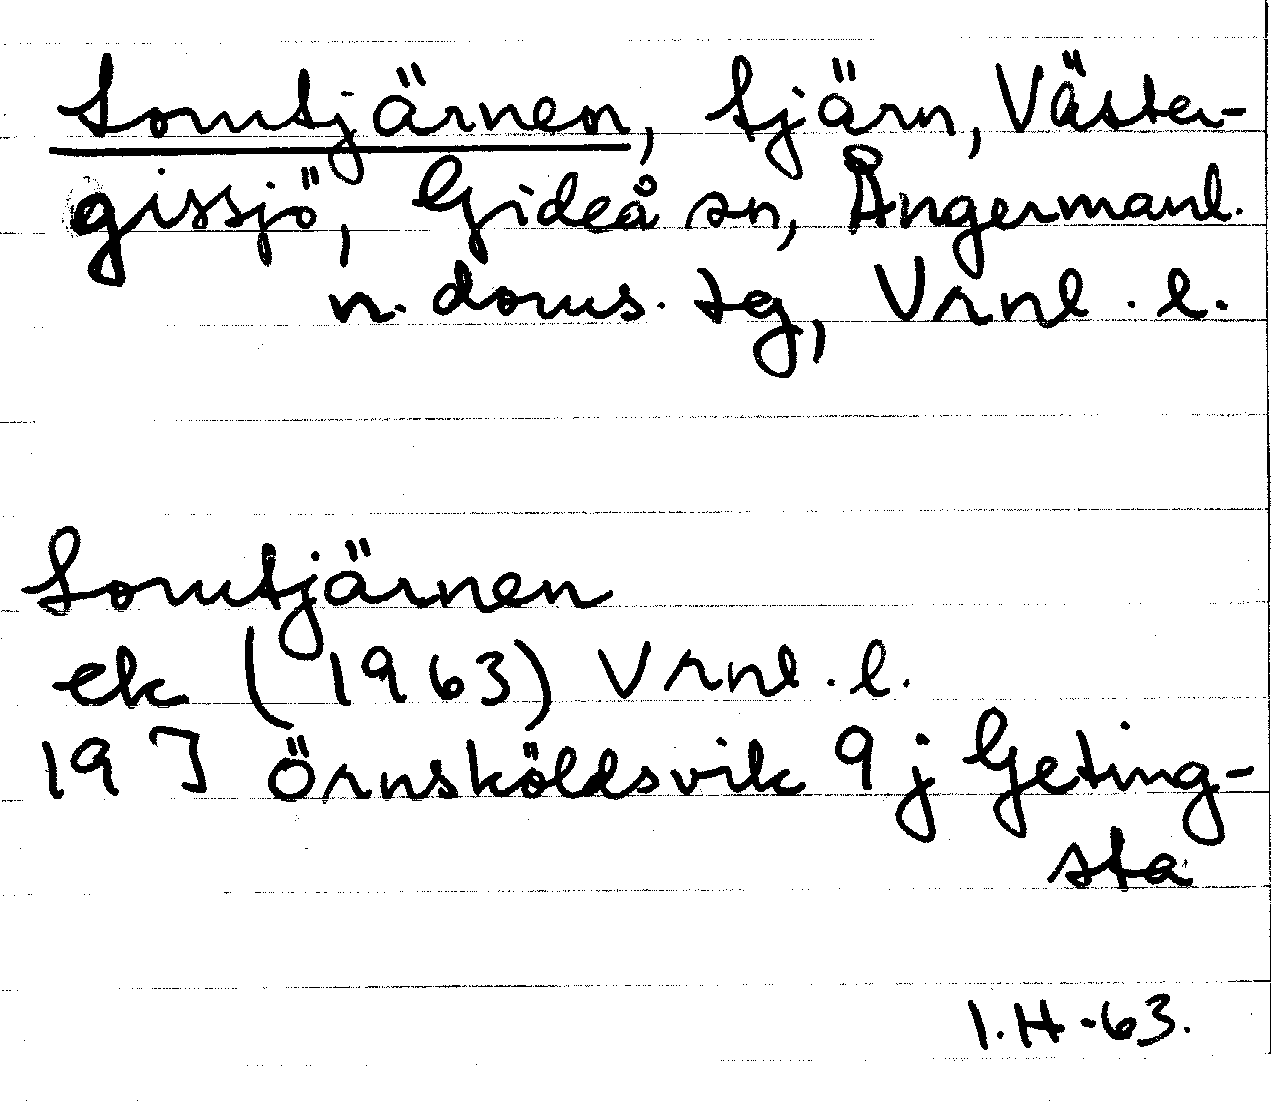 Lomtjärnen, tjärn, Väster-
gissjö, Gideå sn, Ångermanl.
n. doms. tg, Vrnl. l.
Lomtjärnen
ek (1963) Vrnl. l.
19 J Örnsköldsvik 9 j Geting-
sta
I.H-63.